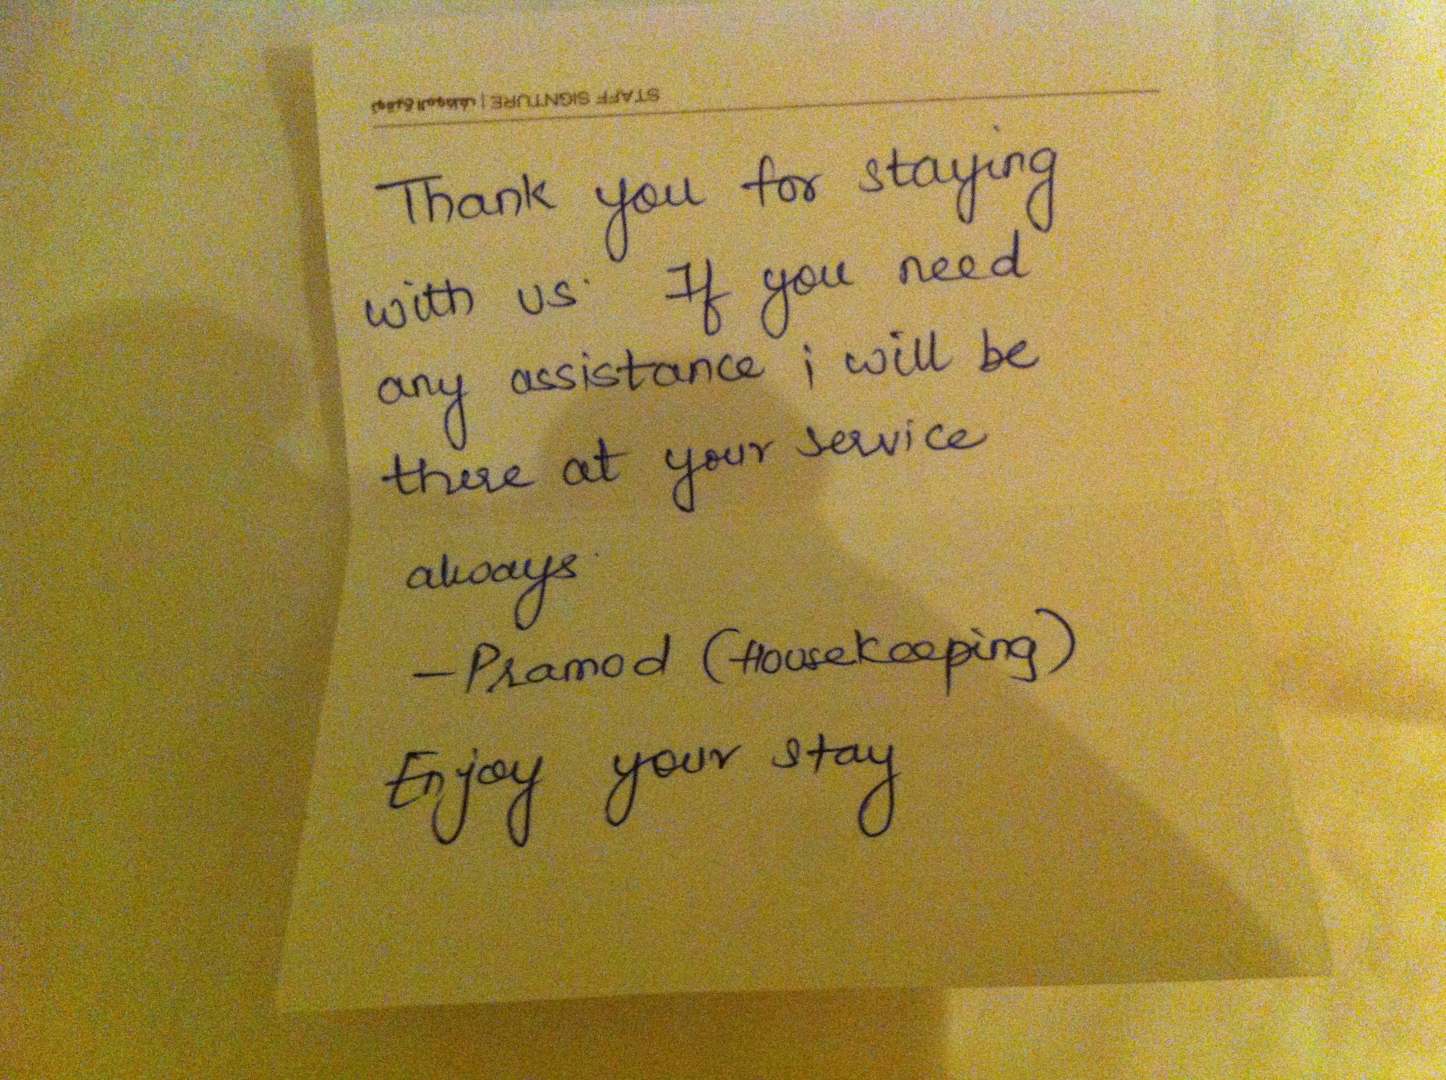 STAFF SIGNTURE |
Thank you for staying
with us. If you need
any assistance i will be
there at your service
always.
- Pramod (Housekeeping)
Enjoy your stay